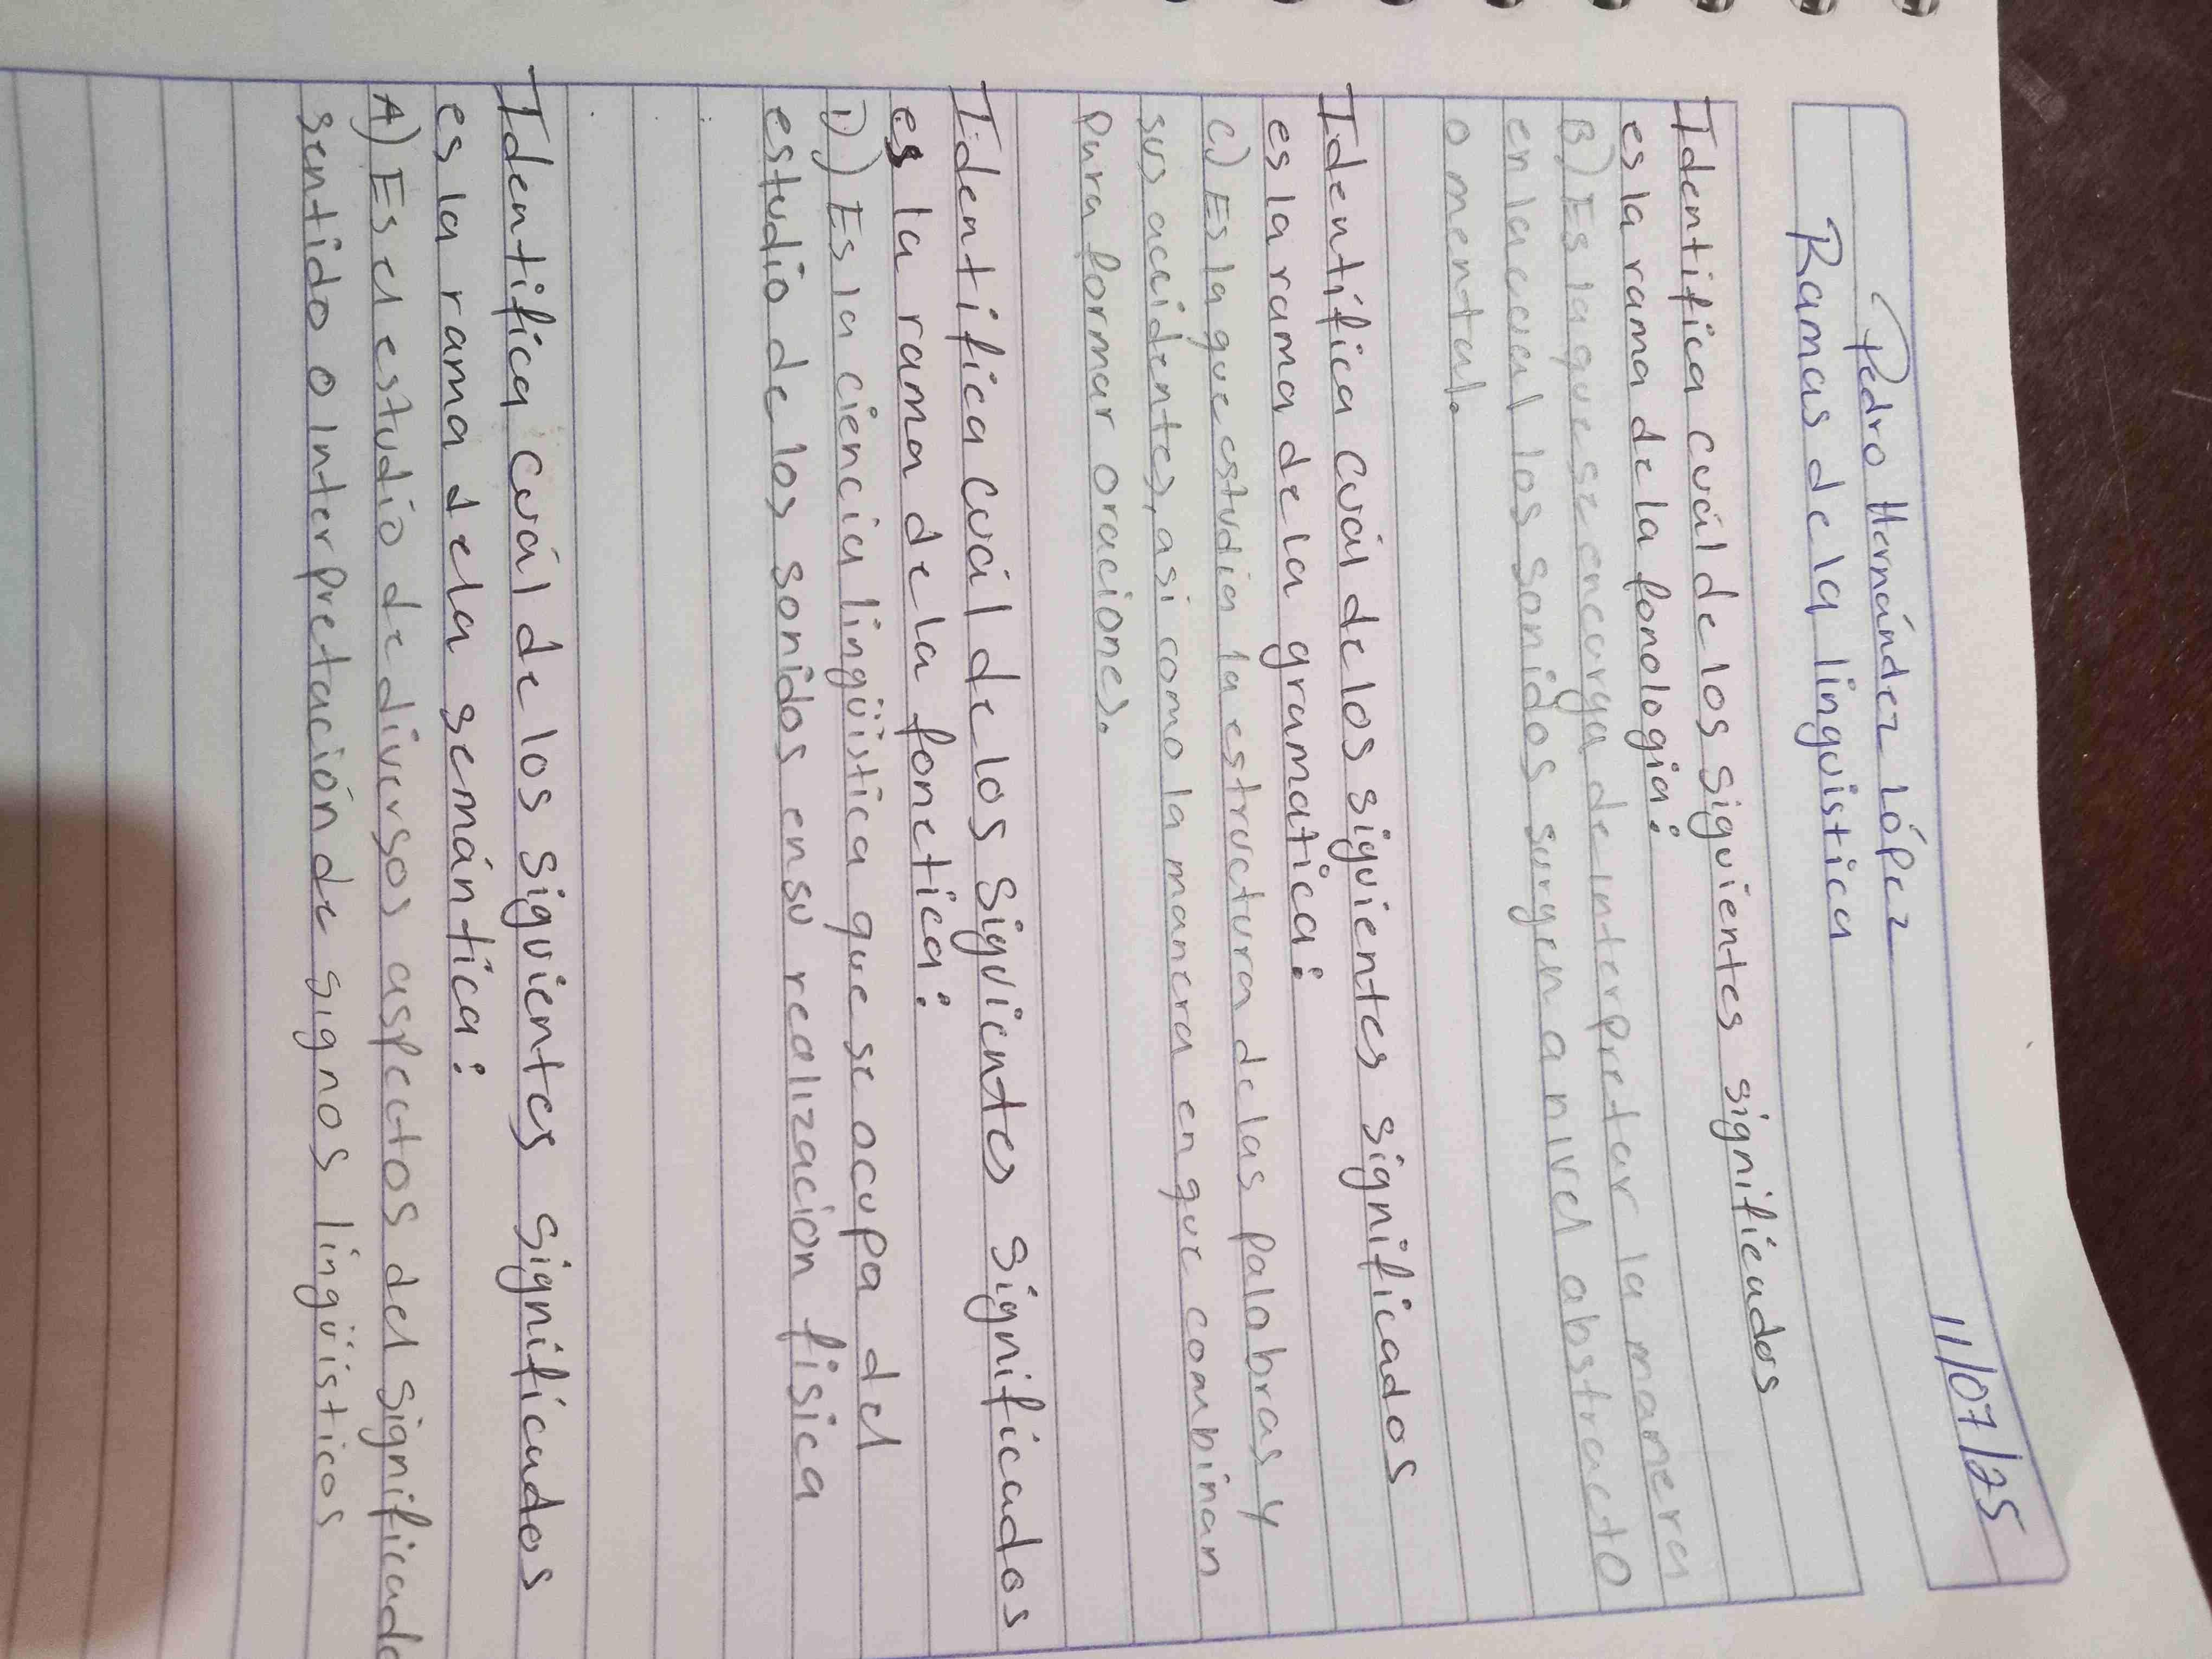 11/07/25
Pedro Hernández López
Ramas de la linguistica
Identifica cuál de los siguientes significados
es la rama de la fonologia:
B) Es la que se encarga de interpretar la manera
en la cual los sonidos surgen a nivel abstracto
o mental.
Identifica cuál de los siguientes significados
es la rama de la gramatica:
C) Es la que estudia la estructura de las palabras y
sus accidentes, asi como la manera en que combinan
para formar oraciones.
Identifica cuál de los siguientes significados
es la rama de la fonetica:
D) Es la ciencia lingüistica que se ocupa del
estudio de los sonidos en su realizacion fisica
Identifica cuál de los siguientes significados
es la rama de la semántica:
A) Es el estudio de diversos aspectos del significado
sentido o interpretación de signos lingüisticos